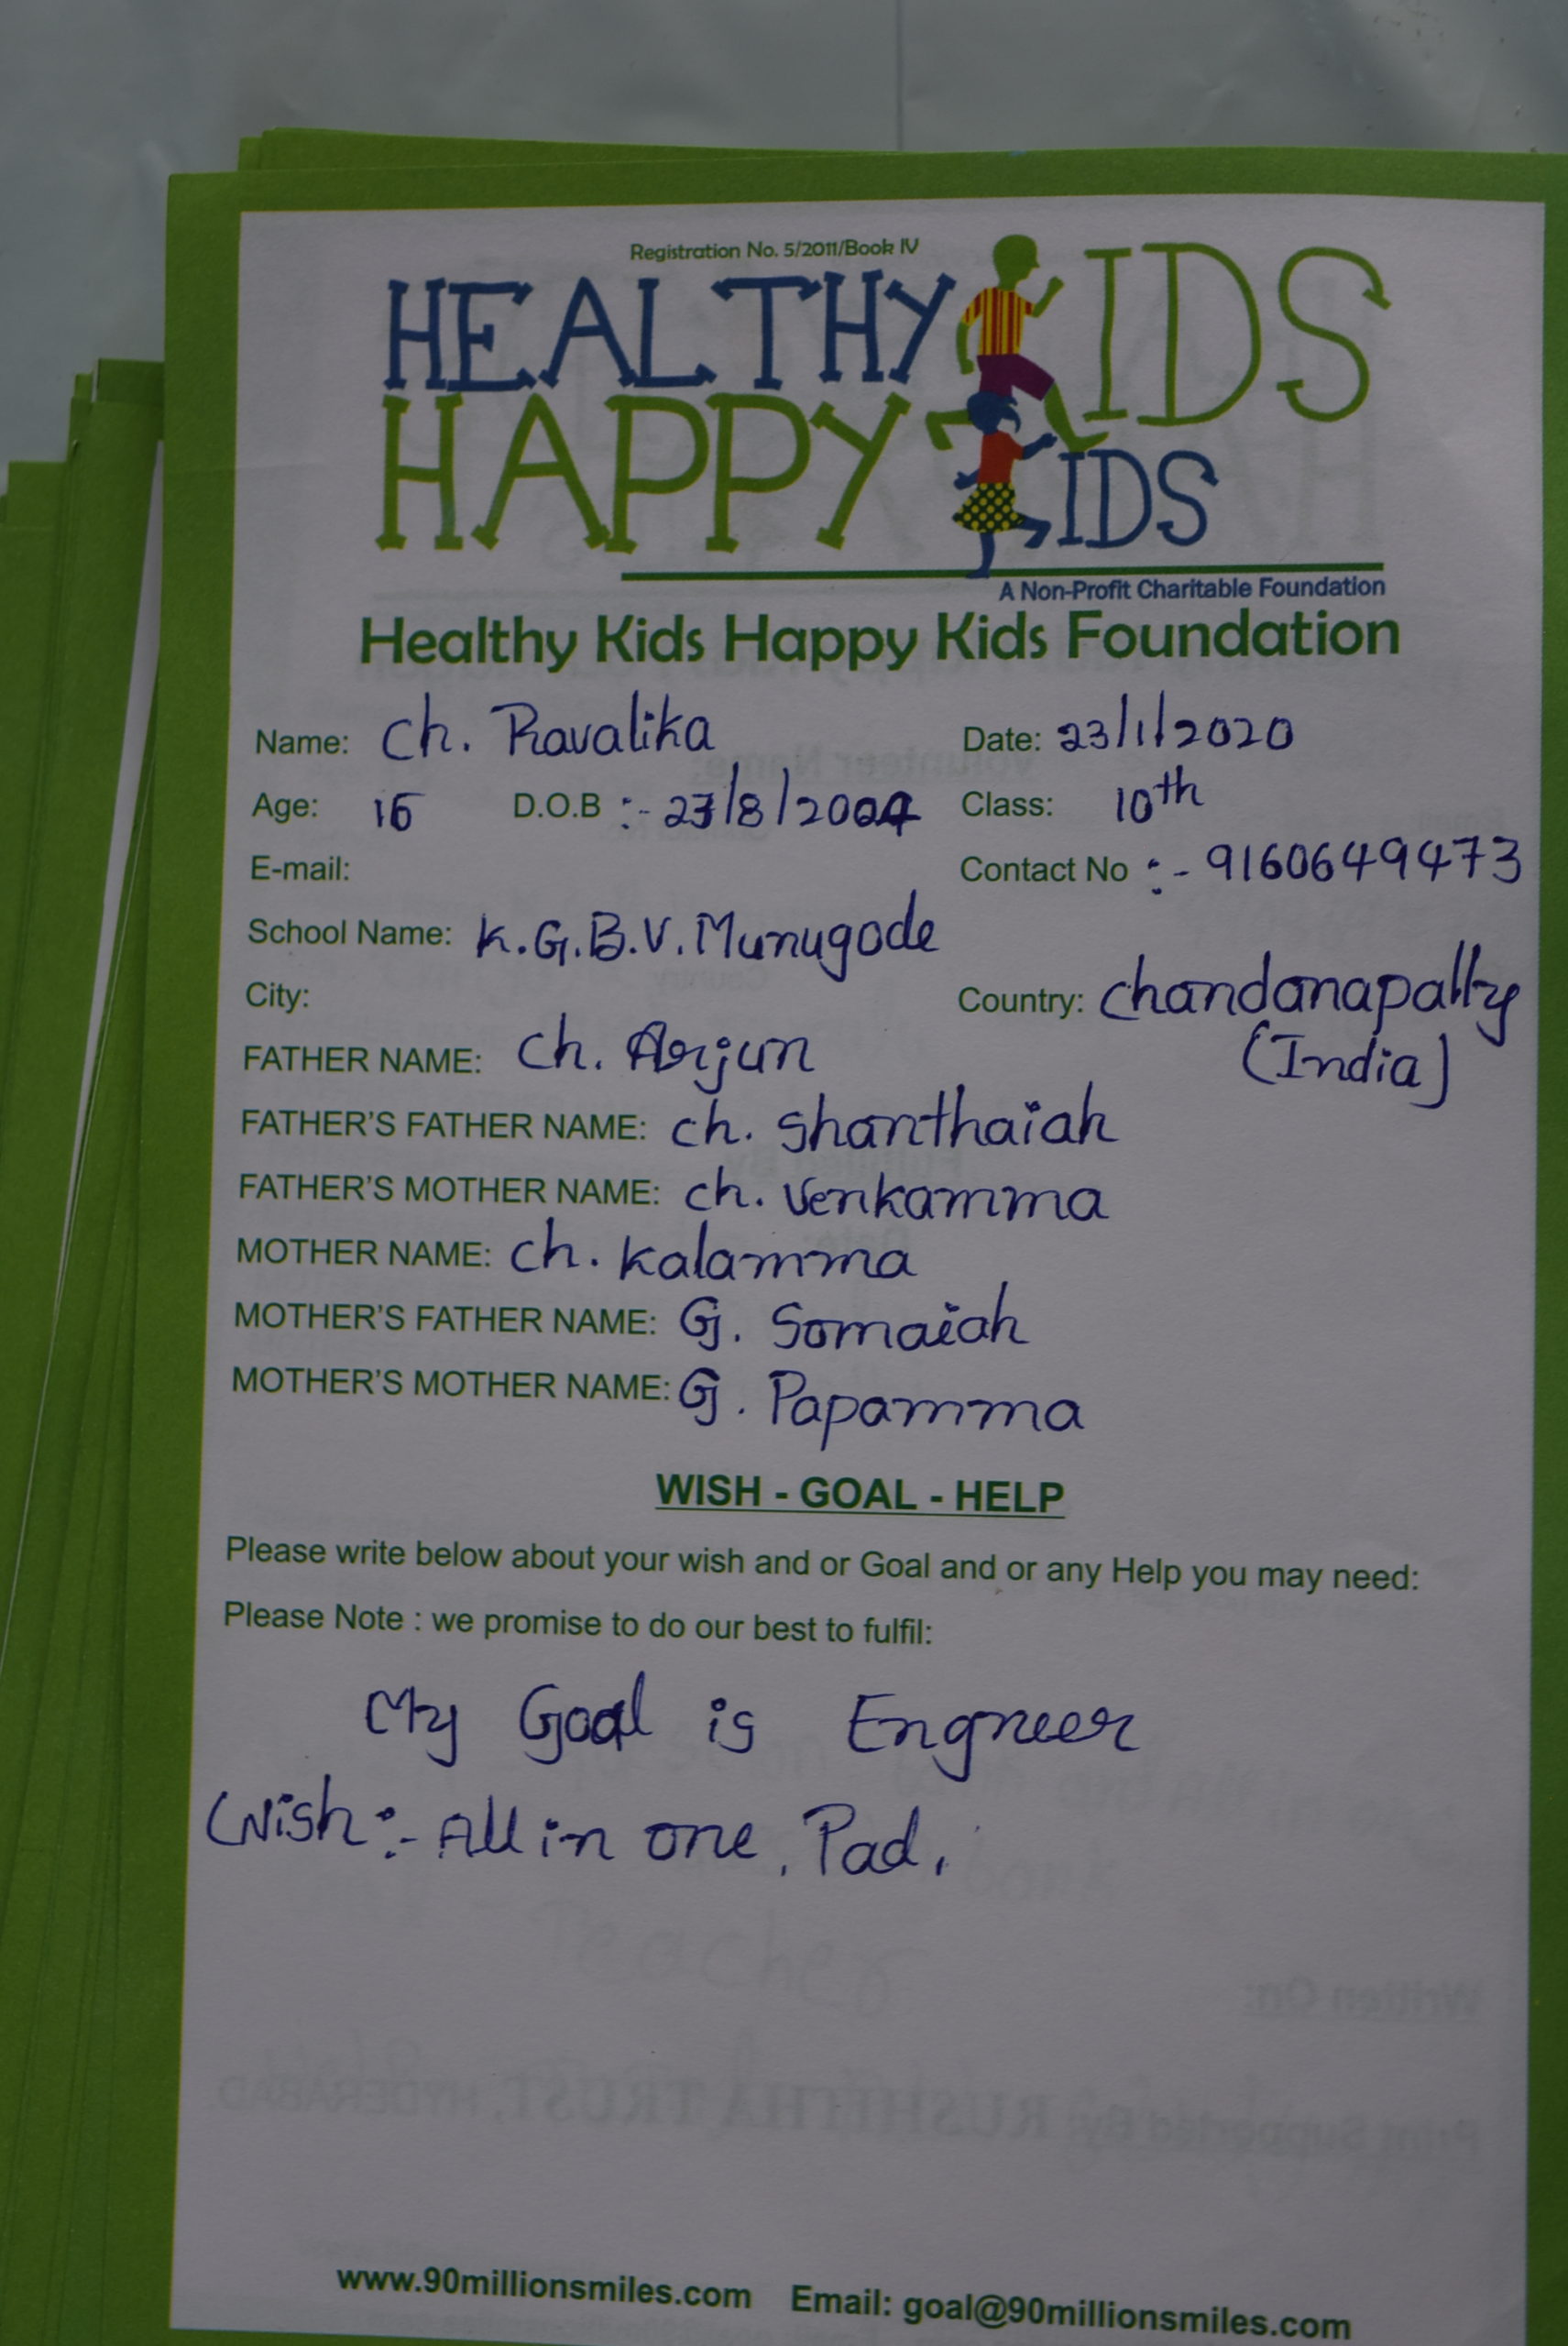 Registration No. 5/2011/Book IV
HEALTHY KIDS
HAPPY KIDS
A Non-Profit Charitable Foundation
Healthy Kids Happy Kids Foundation
Name: Ch. Ravalika Date: 23/1/2020
Age: 15 D.O.B :- 23/8/2004 Class: 10th
E-mail: Contact No :- 9160649473
School Name: K.G.B.V. Munugode
City: Country: Chandanapally
(India)
FATHER NAME: Ch. Arjun
FATHER'S FATHER NAME: Ch. Shanthaiah
FATHER'S MOTHER NAME: Ch. Venkamma
MOTHER NAME: Ch. Kalamma
MOTHER'S FATHER NAME: G. Somaiah
MOTHER'S MOTHER NAME: G. Papamma
WISH - GOAL - HELP
Please write below about your wish and or Goal and or any Help you may need:
Please Note : we promise to do our best to fulfil:
My Goal is Engneer
Wish :- All in one, Pad,
www.90millionsmiles.com Email: goal@90millionsmiles.com